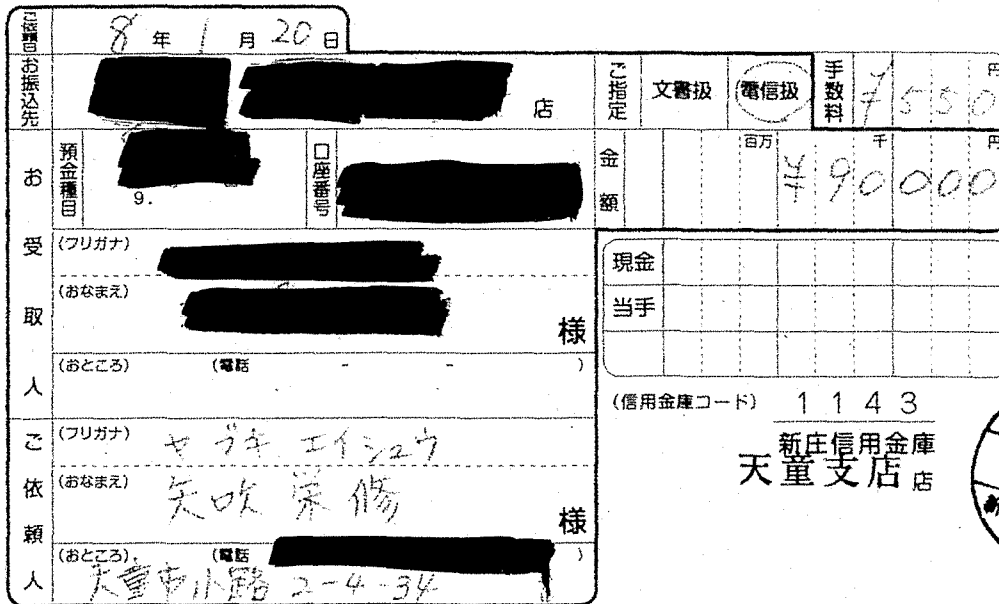 ご依頼日 8年1月20日
お振込先 店 ご指定 文書扱 電信扱 手数料 円 ¥550
お受取人 預金種目 9. 口座番号 金額 百万 千 円 ¥90000
(フリガナ)
(おなまえ) 様
(おところ) (電話 - - )
現金
当手
(信用金庫コード) 1143
新庄信用金庫
天童支店 店
ご依頼人
(フリガナ) ヤブキ エイシュウ
(おなまえ) 矢吹 栄修 様
(おところ) (電話 )
天童市小路 2-4-34